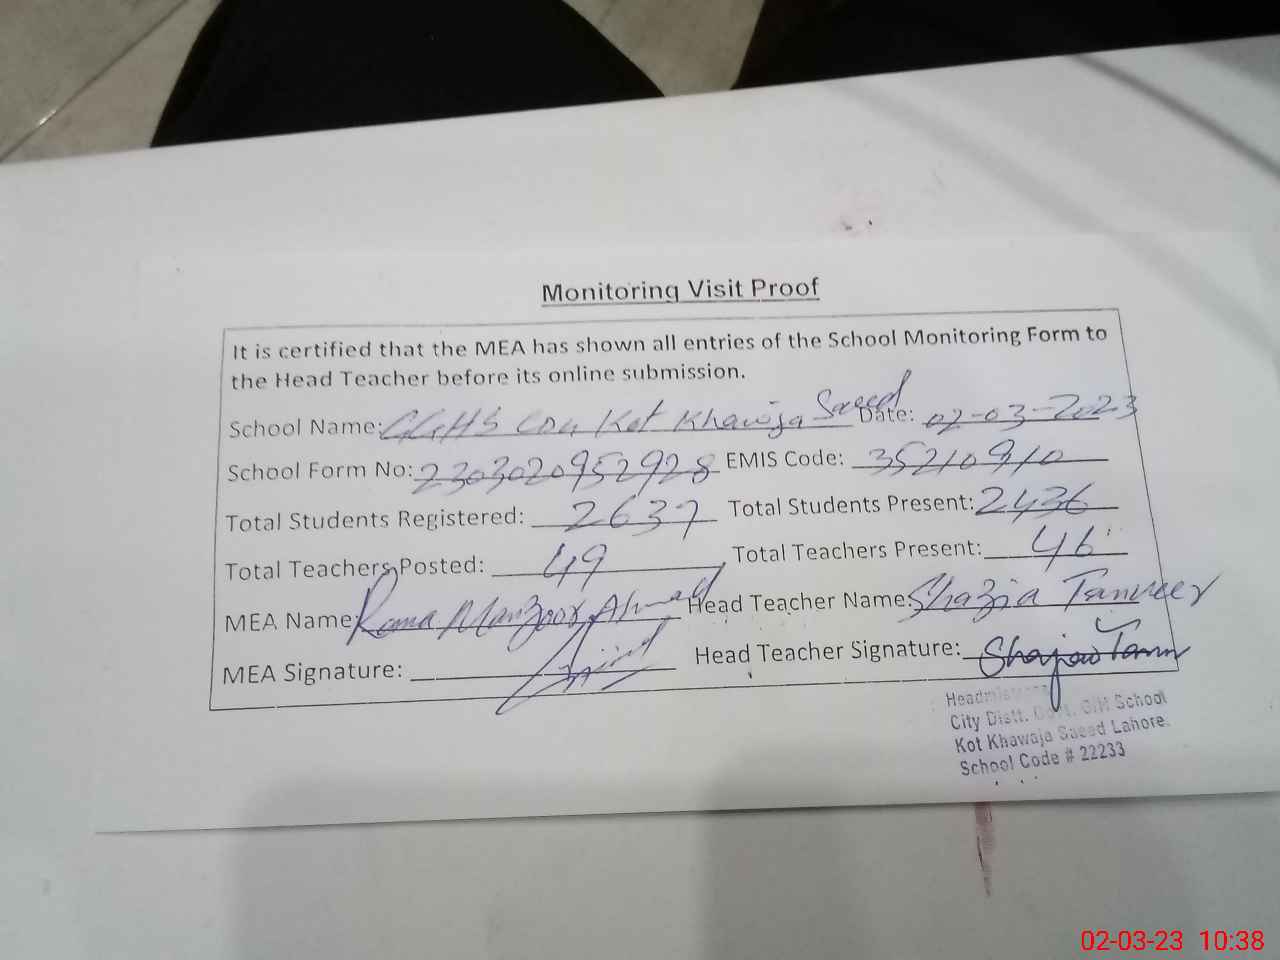 Monitoring Visit Proof
It is certified that the MEA has shown all entries of the School Monitoring Form to
the Head Teacher before its online submission.
School Name: GGHS CDG Kot Khawja Saeed Date: 02-03-2023
School Form No: 2303020952928 EMIS Code: 35210910
Total Students Registered: 2637 Total Students Present: 2436
Total Teachers Posted: 49 Total Teachers Present: 46
MEA Name: Rana Manzoor Ahmad Head Teacher Name: Shazia Tanveer
MEA Signature: Head Teacher Signature:
Headmistress
City Distt. Govt. G/H School
Kot Khawaja Saeed Lahore.
School Code # 22233
02-03-23 10:38